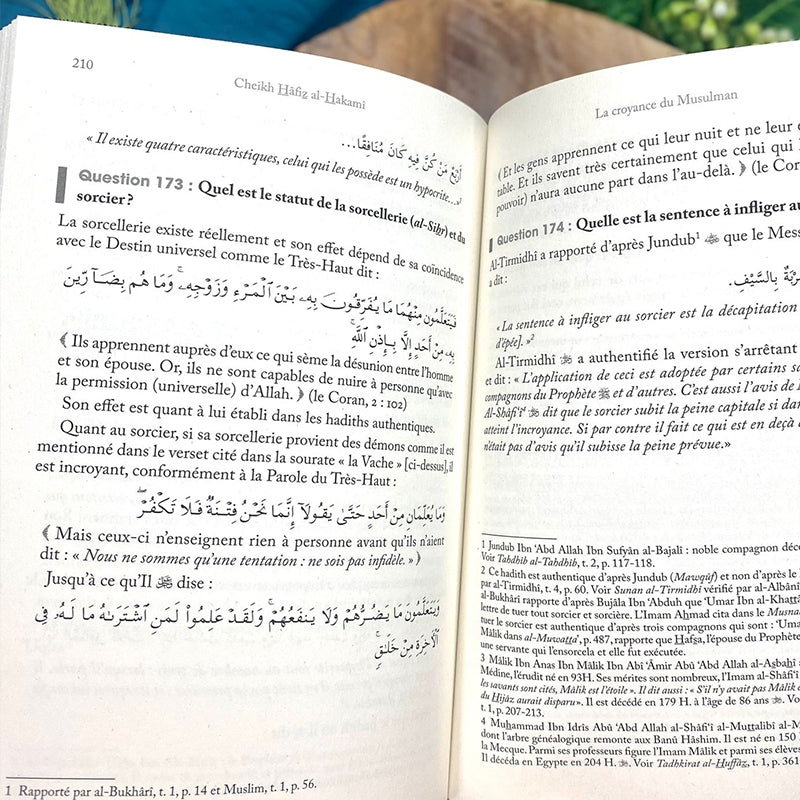 210
Cheikh Hâfiz al-Hakamî
أَرْبَعٌ مَنْ كُنَّ فِيهِ كَانَ مُنَافِقًا...
« Il existe quatre caractéristiques, celui qui les possède est un hypocrite...»¹
Question 173 : Quel est le statut de la sorcellerie (al-Sihr) et du
sorcier ?
La sorcellerie existe réellement et son effet dépend de sa coïncidence
avec le Destin universel comme le Très-Haut dit :
فَيَتَعَلَّمُونَ مِنْهُمَا مَا يُفَرِّقُونَ بِهِۦ بَيْنَ ٱلْمَرْءِ وَزَوْجِهِۦۚ وَمَا هُم بِضَآرِّينَ
بِهِۦ مِنْ أَحَدٍ إِلَّا بِإِذْنِ ٱللَّهِۚ
﴾ Ils apprennent auprès d'eux ce qui sème la désunion entre l'homme
et son épouse. Or, ils ne sont capables de nuire à personne qu'avec
la permission (universelle) d'Allah. ﴿ (le Coran, 2 : 102)
Son effet est quant à lui établi dans les hadiths authentiques.
Quant au sorcier, si sa sorcellerie provient des démons comme il est
mentionné dans le verset cité dans la sourate « la Vache » [ci-dessus], il
est incroyant, conformément à la Parole du Très-Haut :
وَمَا يُعَلِّمَانِ مِنْ أَحَدٍ حَتَّىٰ يَقُولَآ إِنَّمَا نَحْنُ فِتْنَةٌ فَلَا تَكْفُرْۖ
﴾ Mais ceux-ci n'enseignent rien à personne avant qu'ils n'aient
dit : « Nous ne sommes qu'une tentation : ne sois pas infidèle. » ﴿
Jusqu'à ce qu'Il ﷻ dise :
وَيَتَعَلَّمُونَ مَا يَضُرُّهُمْ وَلَا يَنفَعُهُمْۚ وَلَقَدْ عَلِمُوا۟ لَمَنِ ٱشْتَرَىٰهُ مَا لَهُۥ فِى
ٱلْأَخِرَةِ مِنْ خَلَٰقٍۚ
1 Rapporté par al-Bukhârî, t. 1, p. 14 et Muslim, t. 1, p. 56.
La croyance du Musulman
﴾ Et les gens apprennent ce qui leur nuit et ne leur
table. Et ils savent très certainement que celui qui
pouvoir) n'aura aucune part dans l'au-delà. ﴿ (le Cora
Question 174 : Quelle est la sentence à infliger au
Al-Tirmidhî a rapporté d'après Jundub¹ que le Mess
a dit :
رْبَةٌ بِالسَّيْفِ.
« La sentence à infliger au sorcier est la décapitation
d'épée]. »²
Al-Tirmidhî a authentifié la version s'arrêtant
et dit : « L'application de ceci est adoptée par certains sa
compagnons du Prophète ﷺ et d'autres. C'est aussi l'avis de
Al-Shâfi'î⁴ dit que le sorcier subit la peine capitale si dan
atteint l'incroyance. Si par contre il fait ce qui est en deçà
n'était pas d'avis qu'il subisse la peine prévue.»
1 Jundub Ibn 'Abd Allah Ibn Sufyân al-Bajalî : noble compagnon déc
Voir Tahdhîb al-Tahdhîb, t. 2, p. 117-118.
2 Ce hadith est authentique d'après Jundub (Mawqûf) et non d'après le
par al-Tirmidhî, t. 4, p. 60. Voir Sunan al-Tirmidhî vérifié par al-Albânî
al-Bukhârî rapporte d'après Bujâla Ibn 'Abduh que 'Umar Ibn al-Khattâ
lettre de tuer tout sorcier et sorcière. L'Imam Ahmad cita dans le Musna
tuer le sorcier est authentique d'après trois compagnons qui sont : 'Uma
Mâlik dans al-Muwatta', p. 487, rapporte que Hafsa, l'épouse du Prophète
une servante qui l'ensorcela et elle fut exécutée.
3 Mâlik Ibn Anas Ibn Mâlik Ibn Abî 'Âmir Abû 'Abd Allah al-Asbahî
Médine, l'érudit né en 93H. Ses mérites sont nombreux, l'Imam al-Shâfi'î
les savants sont cités, Mâlik est l'étoile ». Il dit aussi : « S'il n'y avait pas Mâlik
du Hijâz aurait disparu». Il est décédé en 179 H. à l'âge de 86 ans
t. 1, p. 207-213.
4 Muhammad Ibn Idrîs Abû 'Abd Allah al-Shâfi'î al-Muttalibî al-M
dont l'arbre généalogique remonte aux Banû Hâshim. Il est né en 150
la Mecque. Parmi ses professeurs figure l'Imam Mâlik et parmi ses élèves
Il décéda en Egypte en 204 H. Voir Tadhkirat al-Huffâz, t. 1, p. 361